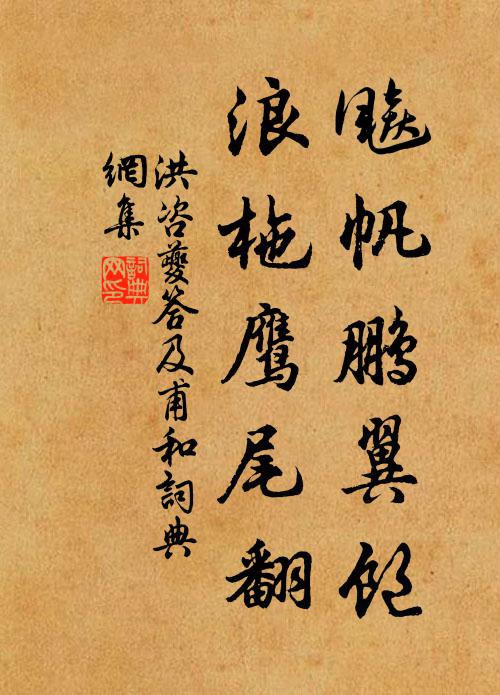 飈帆鹏翼饱
浪柂鹰尾翻
洪咨夔答及甫和詞典
網集
詞典网印